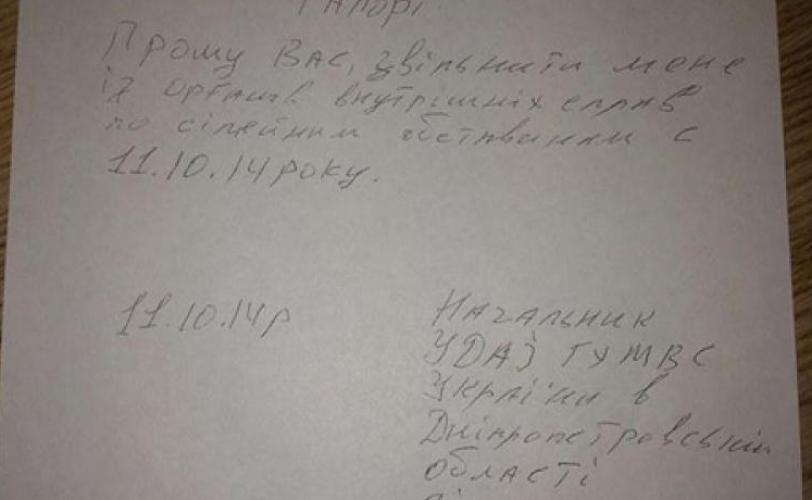 РАПОРТ
Прошу ВАС, звільнити мене
із органів внутрішніх справ
по сімейним обставинам с
11.10.14 року.
11.10.14 р
Начальник
УДАЇ ГУМВС
України в
Дніпропетровській
області